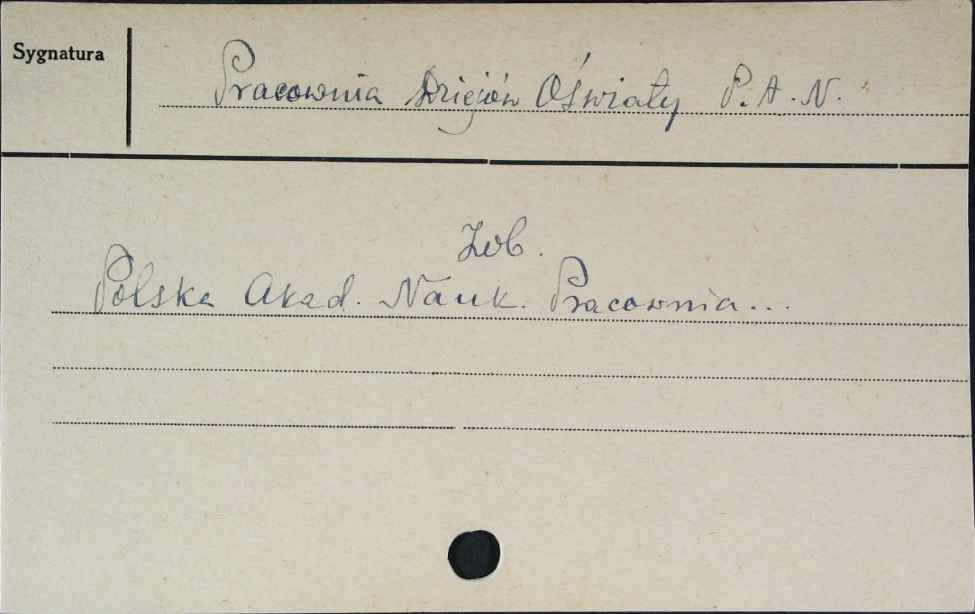 Sygnatura
Pracownia Dziejów Oświaty P.A.N.
Zob.
Polska Akad. Nauk. Pracownia...